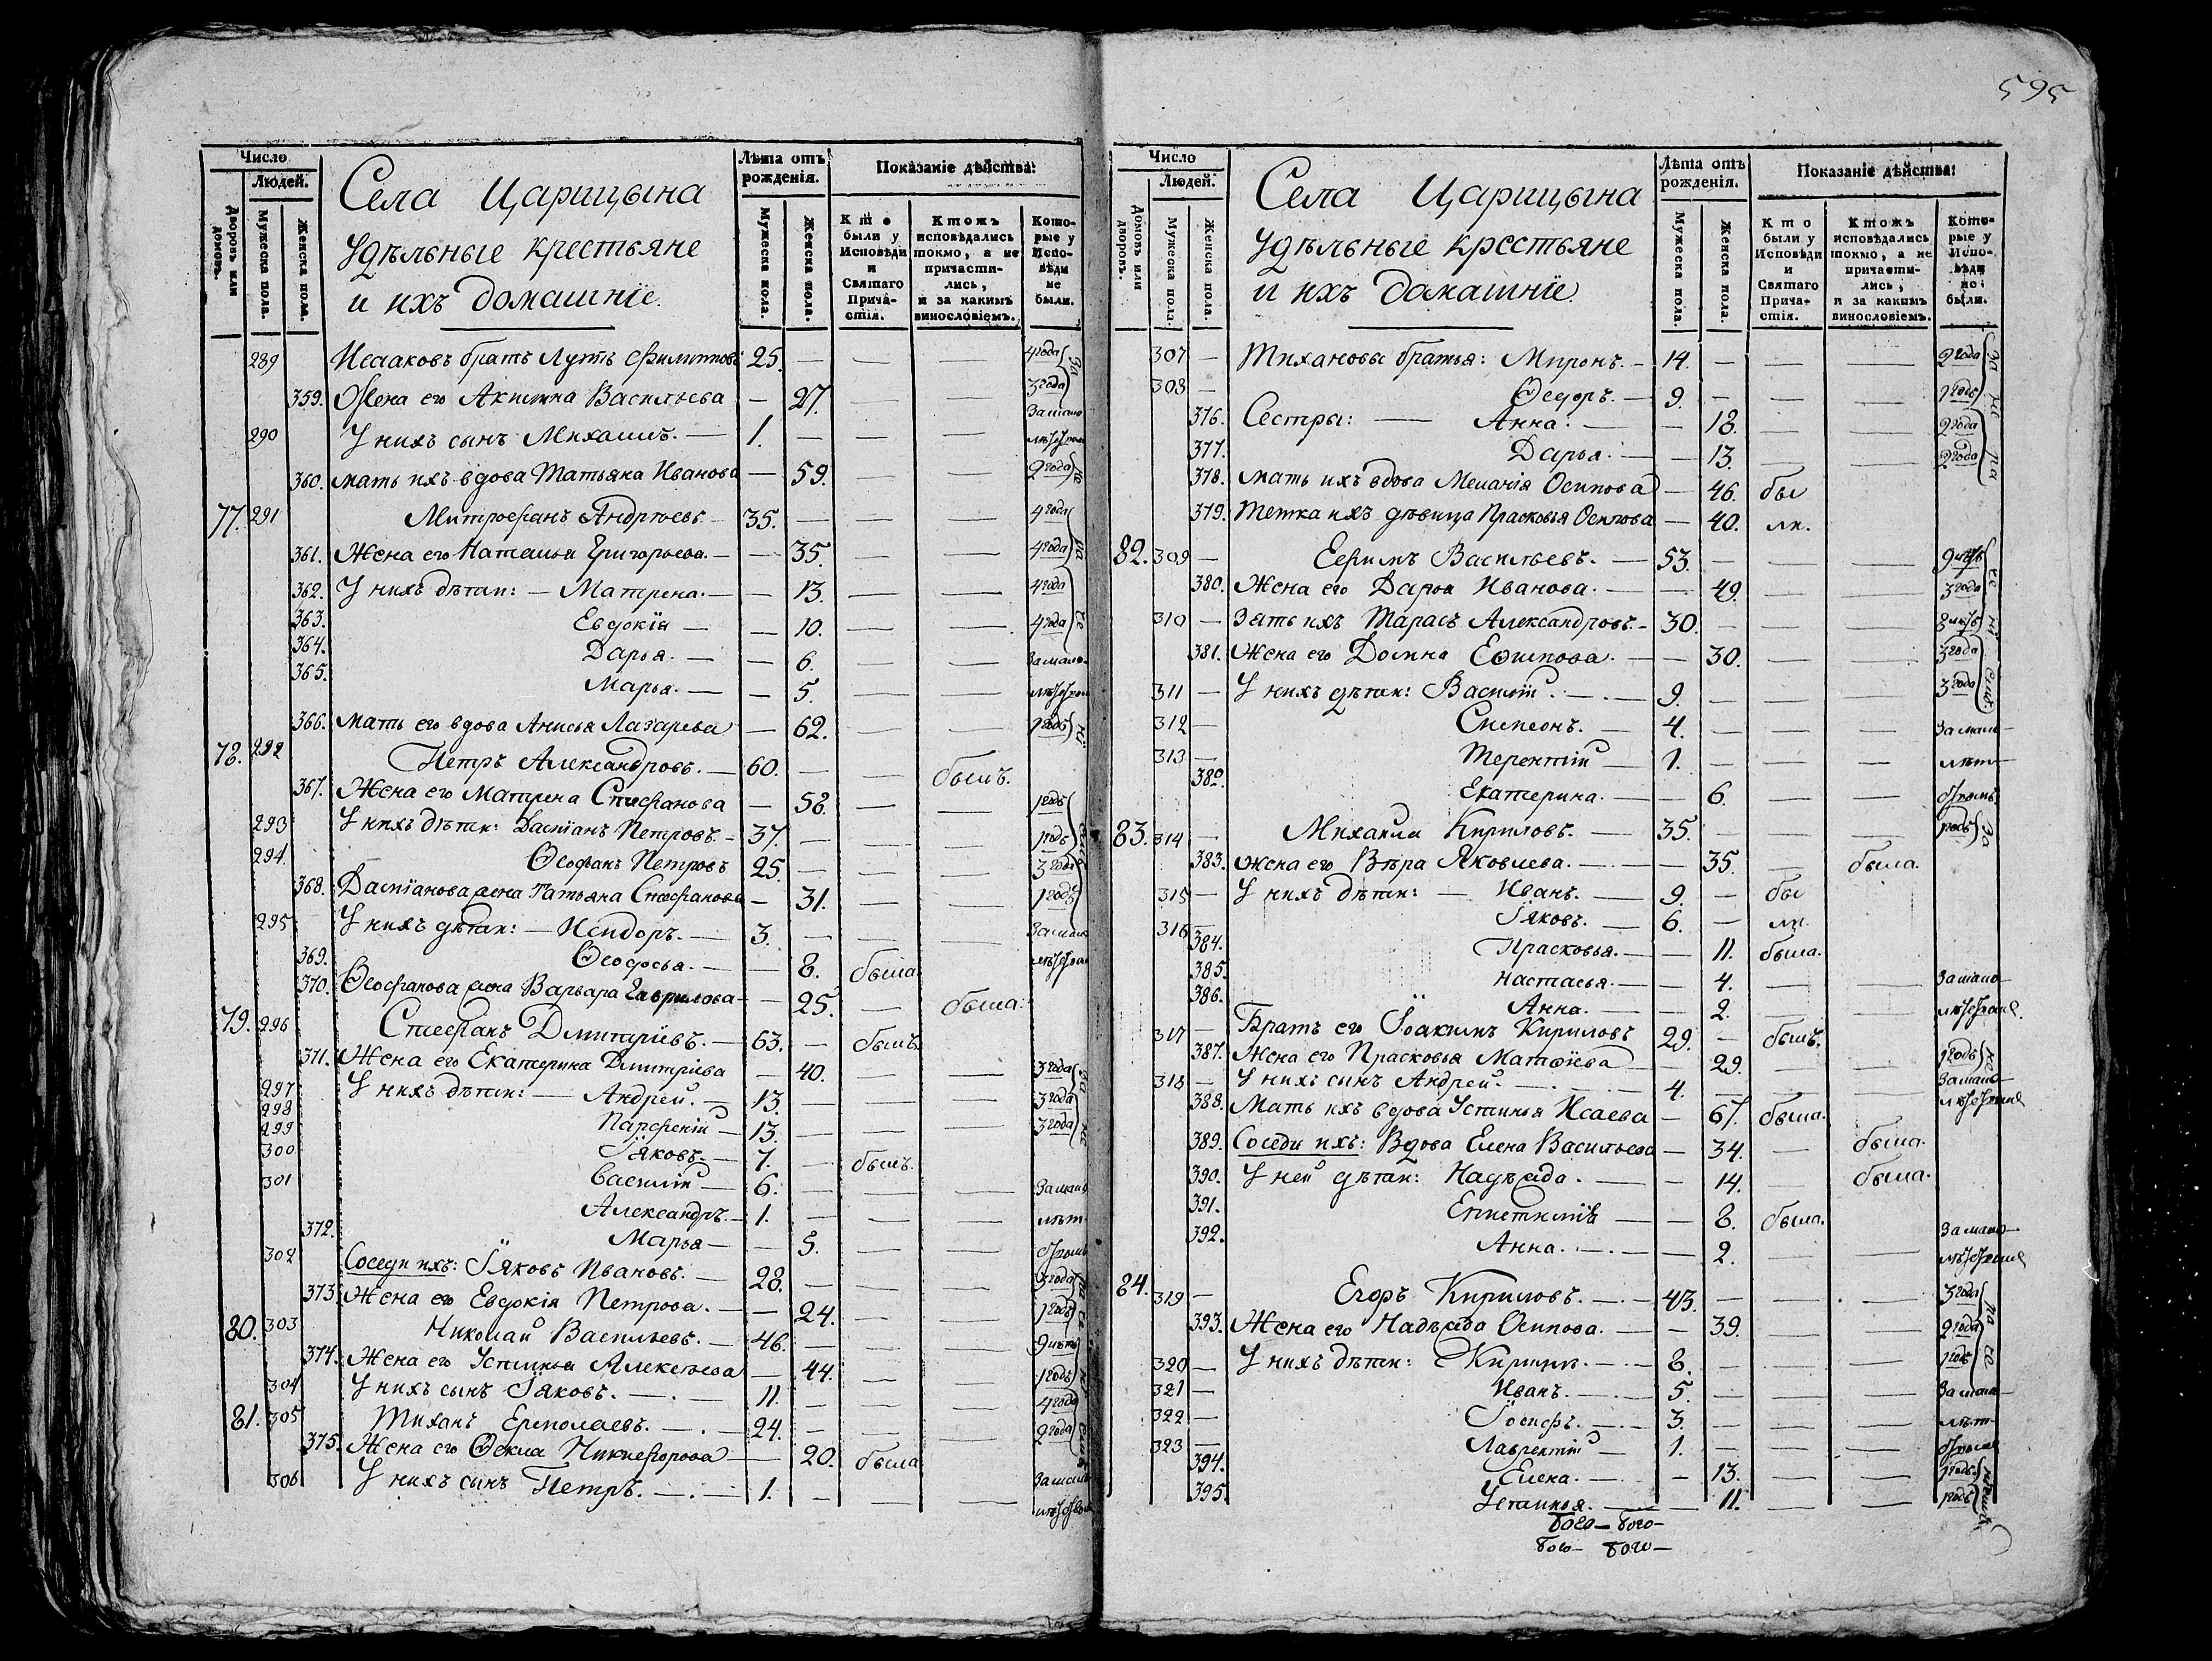 595
Число
Людей.
Дворовъ или домовъ.
Мужеска пола.
Женска пола.
Села Царицына
Удѣльные крестьяне
и ихъ домашнїе.
Лѣта отъ рожденія.
Мужеска пола.
Женска пола.
Показаніе дѣйства:
Кто были у Исповѣди и Святаго Причастія.
Ктожъ исповѣдались токмо, а не причастились, и за какимъ винословіемъ.
Которые у Исповѣди не были.
289 Исааковъ братъ Лутъ Филипповъ 25. — — — 4 года
359. Жена его Акилина Васильева — 27. — — 3 года
290 У нихъ сынъ Михаилъ. — 1. — — — За мало
360. мать ихъ вдова Татьяна Иванова — 59. — — 2 года
77. 291 Митрофанъ Андрѣевъ. — 35. — — — 4 года
361. Жена его Наталья Григорьева. — — 35. — — 4 года
362. У нихъ дѣти: — Матрена. — — 13. — — 4 года
363. Евдокїя — — 10. — — 4 года
364. Дарья. — — 6. — — За мало-
365. Марья. — — 5. — —
366. мать его вдова Анисья Лазарева — 62. — — 1 годъ
78. 292 Петръ Александровъ. — 60. — — былъ.
367. Жена его Матрена Стефанова — 58. — — 1 годъ
293 У нихъ дѣти: Дамїанъ Петровъ. — 37. — — — 1 годъ
294. Ѳеофанъ Петровъ 25. — — — 3 года
368. Дамїанова жена Татьяна Стефанова — 31. — — 1 годъ
295 У нихъ дѣти: — Исидоръ. — 3. — — — За мало
369. Ѳеодосья. — — 8. была
370. Ѳеофанова жена Варвара Гаврилова — — 25. — была.
79. 296 Стефанъ Дмитрїевъ. — 63. — былъ
371. Жена его Екатерина Дмитрїева — 40. — — 3 года
297 У нихъ дѣти: — Андрей. — 13. — — — 3 года
298 Парфенїй — 13. — — — 3 года
299 Їяковъ. — 7. — былъ.
300 Василїй — 6. — — — За мало
301 Александръ. — 1. — — — лѣт-
372. Марья — — 5. — —
302 Соседи ихъ: Їяковъ Ивановъ. — 28. — — — 3 года
373. Жена его Евдокїя Петрова. — — 24. — — 1 годъ
80. 303 Николай Васильевъ. — 46. — — — 9 лѣтъ
374. Жена его Устинья Алексѣева — 44. — — 1 годъ
304 У нихъ сынъ Їяковъ. — . — 11. — — — 4 года
81. 305 Тиханъ Ермолаевъ. — . — 24. — — — 2 года
375. Жена его Ѳекла Никифорова — 20. была
306 У нихъ сынъ Петръ. — . — 1. — — — За мало
Число
Людей.
Домовъ или дворовъ.
Мужеска пола.
Женска пола.
Села Царицына
Удѣльные крестьяне
и ихъ домашнїе
Лѣта отъ рожденія.
Мужеска пола.
Женска пола.
Показаніе дѣйства:
Кто были у Исповѣди и Святаго Причастія.
Ктожъ исповѣдались токмо, а не причастились, и за какимъ винословіемъ.
Которые у Исповѣди не были.
307 — Тихановы братья: Миронъ. — 14. — — — 2 года
308 — Ѳедоръ. — 9. — — — 1 годъ
376. Сестры: — Анна. — — 18. — — 2 года
377. Дарья. — — 13. — — 2 года
378. мать ихъ вдова Меланїя Осипова — 46. бы
379. Тетка ихъ дѣвица Прасковья Осипова — 40. ли.
82. 309 — Ефимъ Васильевъ. — 53. — — — 9 лѣтъ
380. Жена его Дарья Иванова. — — 49. — — 3 года
310 — Зять ихъ Тарасъ Александровъ. — 30. — — — 8 лѣтъ
381. Жена его Домна Ефимова. — — 30. — — 3 года
311 — У нихъ дѣти: Василїй. — . — 9. — — — 3 года
312 — Симеонъ. — 4. — — — За мало —
313 — Терентїй — 1. — — — лѣт-
382. Екатерина. — — 6. — —
83. 314 — Михаилъ Кириловъ. — 35. — — — 1 годъ
383. жена его Вѣра Яковлева. — . — — 35. — была.
315 — У нихъ дѣти: — Иванъ. — 9. — бы
316 — Їяковъ. — 6. — ли.
384. Прасковья. — — 11. была.
385. Настасья. — — 4. — — За мало-
386. Анна. — — 2. — —
317 — Братъ его Їоакимъ Кириловъ 29. — былъ.
387. Жена его Прасковья Матѳїева — 29. — — 1 годъ
318 — У нихъ сынъ Андрей. — . — . — 4. — — — За мало-
388. Мать ихъ вдова Устинья Исаева — 67. была.
389. Соседи ихъ: Вдова Елена Васильева — 34. — была.
390. У ней дѣти: Надѣжда. — — 14. — была.
391. Епистимїя — — 8. была.
392. Анна. . — . — — 2. — — За мало —
84. 319 — Егоръ Кириловъ. — . — 43. — — — 3 года
393. Жена его Надѣжда Осипова. — — 39. — — 2 года
320 — У нихъ дѣти: Кирилъ. — . — 8. — — — 1 годъ
321 — Иванъ. — . — 5. — — — За мало —
322 — Їосифъ. — . — 3. — — — лѣт-
323 — Лаврентїй — 1. — — —
394. Елена. — . — — 13. — — 1 годъ
395. Устинья. — — 11. — — 1 годъ